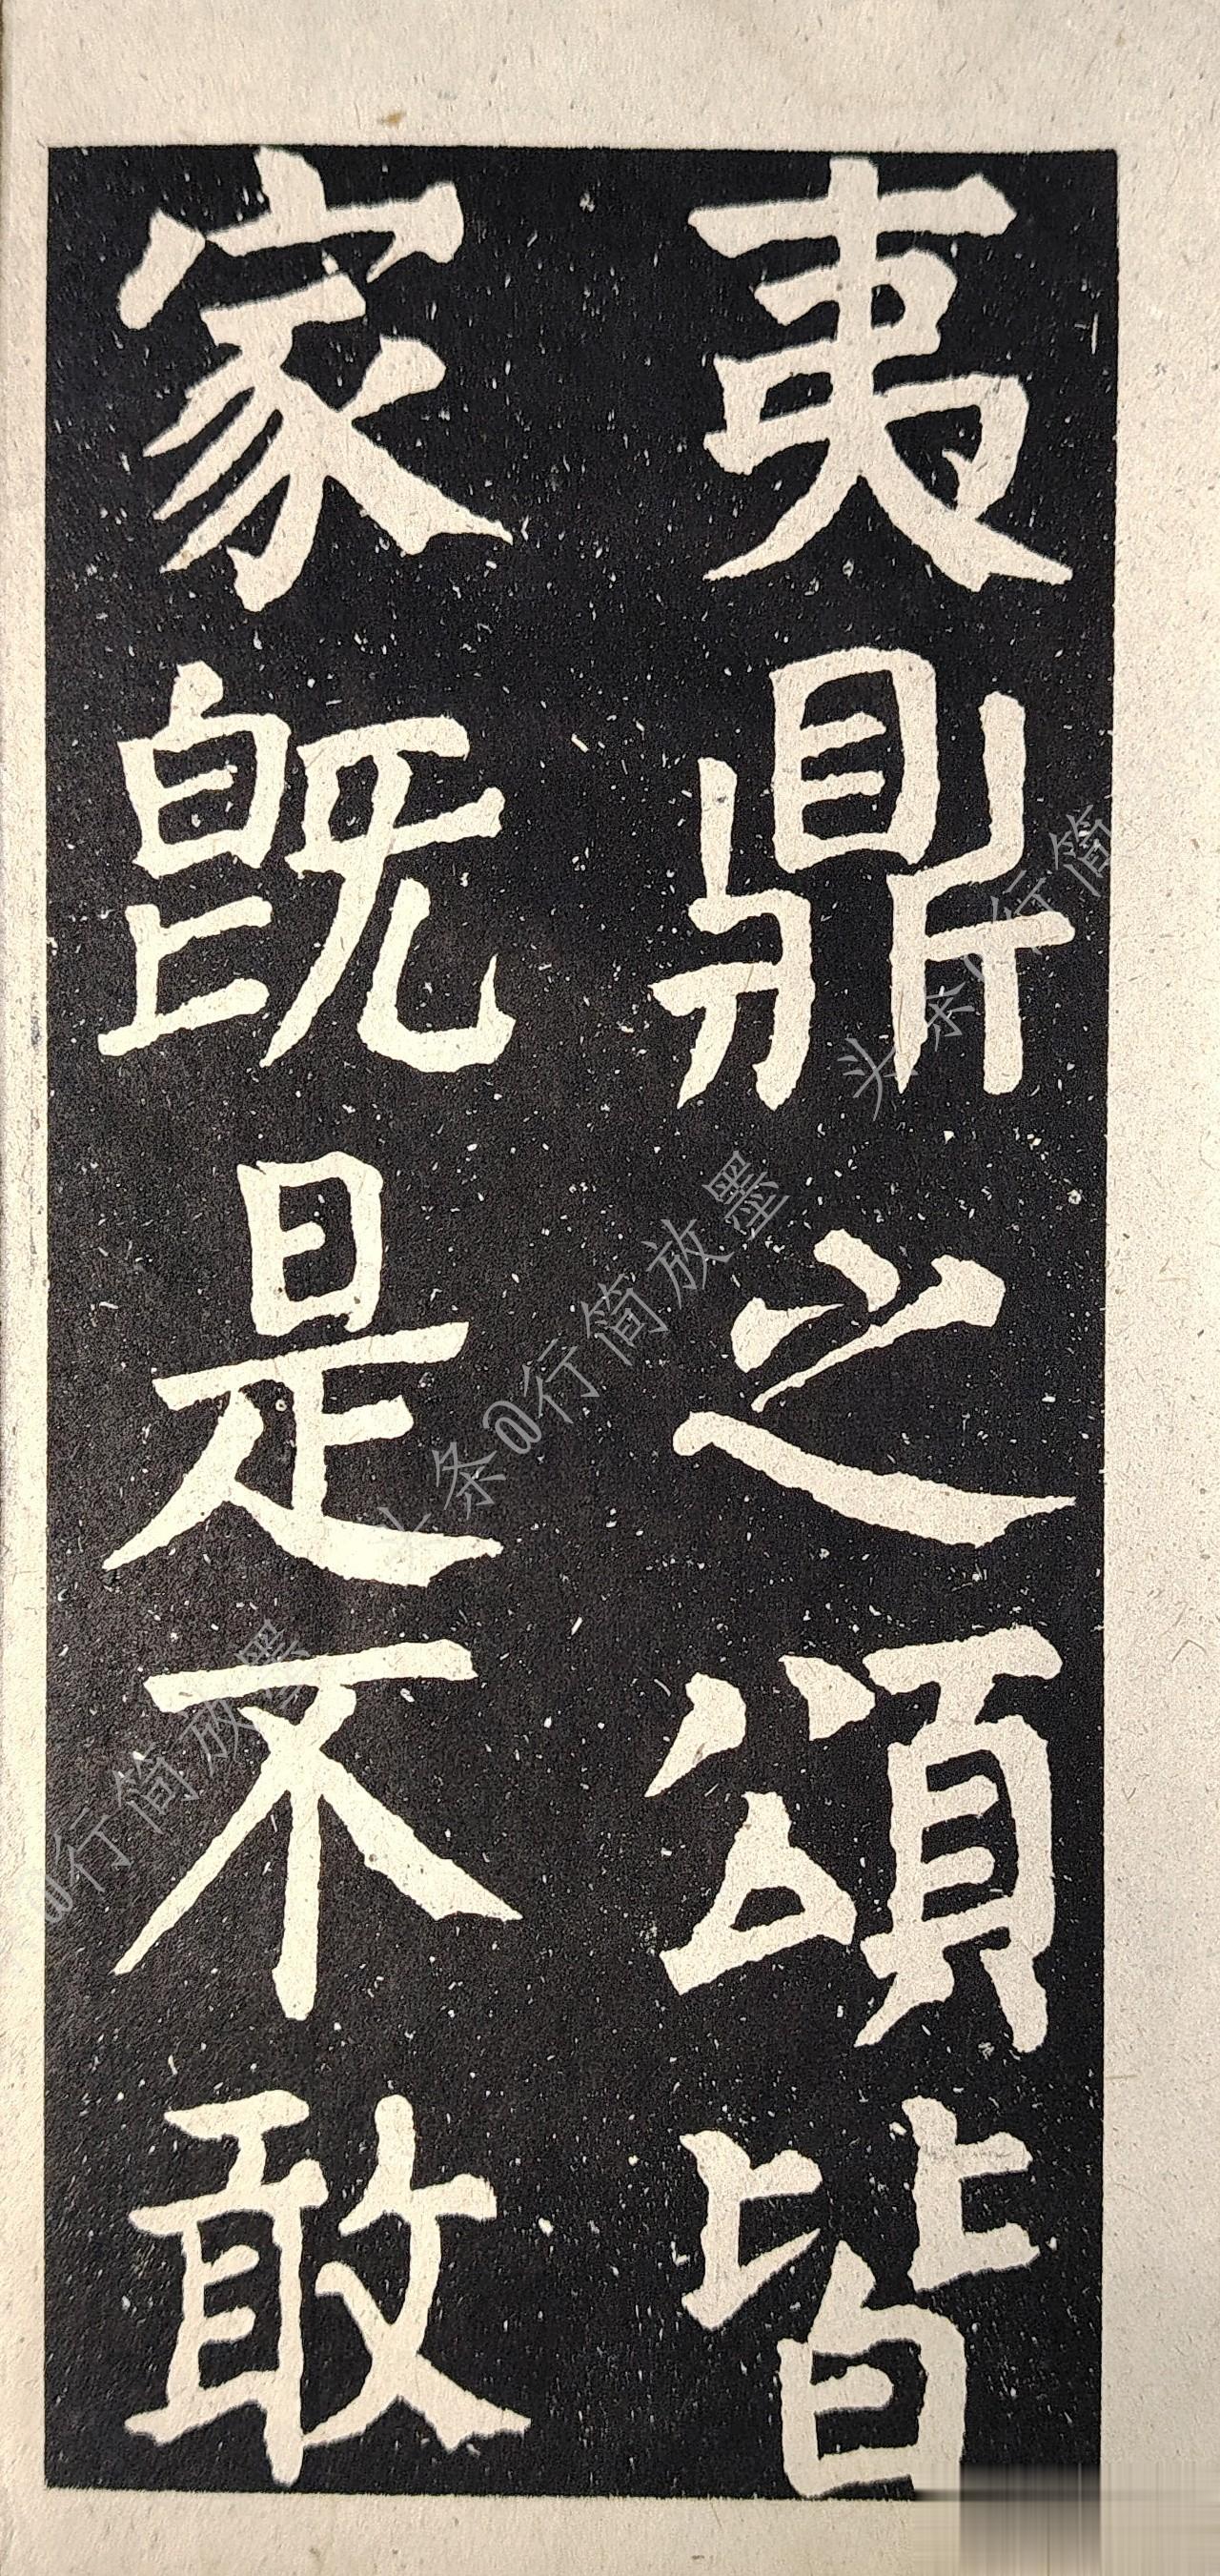 夷鼎之頌皆
家既是不敢
头条@行简放墨
头条@行简
@行简放墨